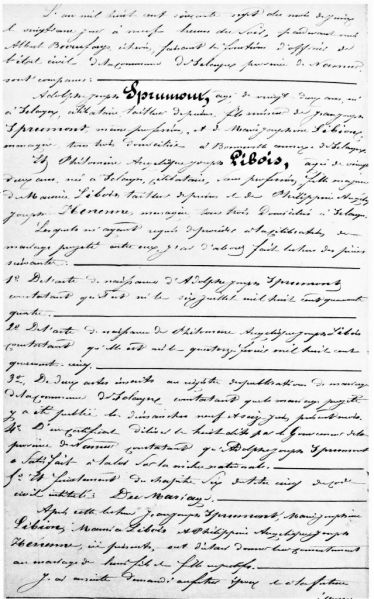 L'an mil huit cent soixante sept du mois de juin
le vingt six à neuf heures du soir, pardevant nous
Albert échevin, faisant les fonctions d'officier de
l'état civil de la commune de Selayes province de Namur
sont comparus:
Adolphe joseph Sprumont, agé de vingt deux ans, né
à Selayes, célibataire tailleur de pierres, fils mineur de jeanjoseph
Sprumont, même profession, et de Marie Josephine Lebion,
ménagère, tous trois domiciliés à commune de Selayes.
Et Philomène Angélique joseph Libois, agée de vingt
deux ans, née à Selayes, célibataire, sans profession, fille majeure
de Maurice Libois tailleur de pierres et de Philippine Angélique
Joseph Henenne, ménagère, tous trois Domiciliés à Selayes.
Lesquels m'ayant requis de procéder à la célébration du
mariage projeté entre eux, j'ai d'abord fait lecture des pièces
suivantes
1º De l'acte de naissance d'Adolphe joseph Sprumont
constatant qu'il est né le six juillet mil huit cent quarante
quatre.
2º De l'acte de naissance de Philomène Angélique joseph Libois
constatant qu'elle est née le quatorze février mil huit cent
quarante cinq.
3º De deux actes inscrits au registre des publications de mariage
de la commune de Selayes constatant que le mariage projeté
y a été publié les dimanches neuf et seize juin, présent mois.
4º D'un certificat délivré le huit dito par le Gouverneur de la
province de Namur constatant qu'Adolphe joseph Sprumont
a satisfait à la loi sur la milice nationale.
5º Et finalement du chapitre six du titre cinq du code
civil intitulé: Du Mariage.
Après cette lecture Jeanjoseph Sprumont, Marie josephine
Lebion, Maurice Libois et Philippine Angélique joseph
Henenne, ici présents, ont déclaré donner leur consentement
au mariage de leurs fils et fille
J'ai ensuite demandé au futur époux et à la future